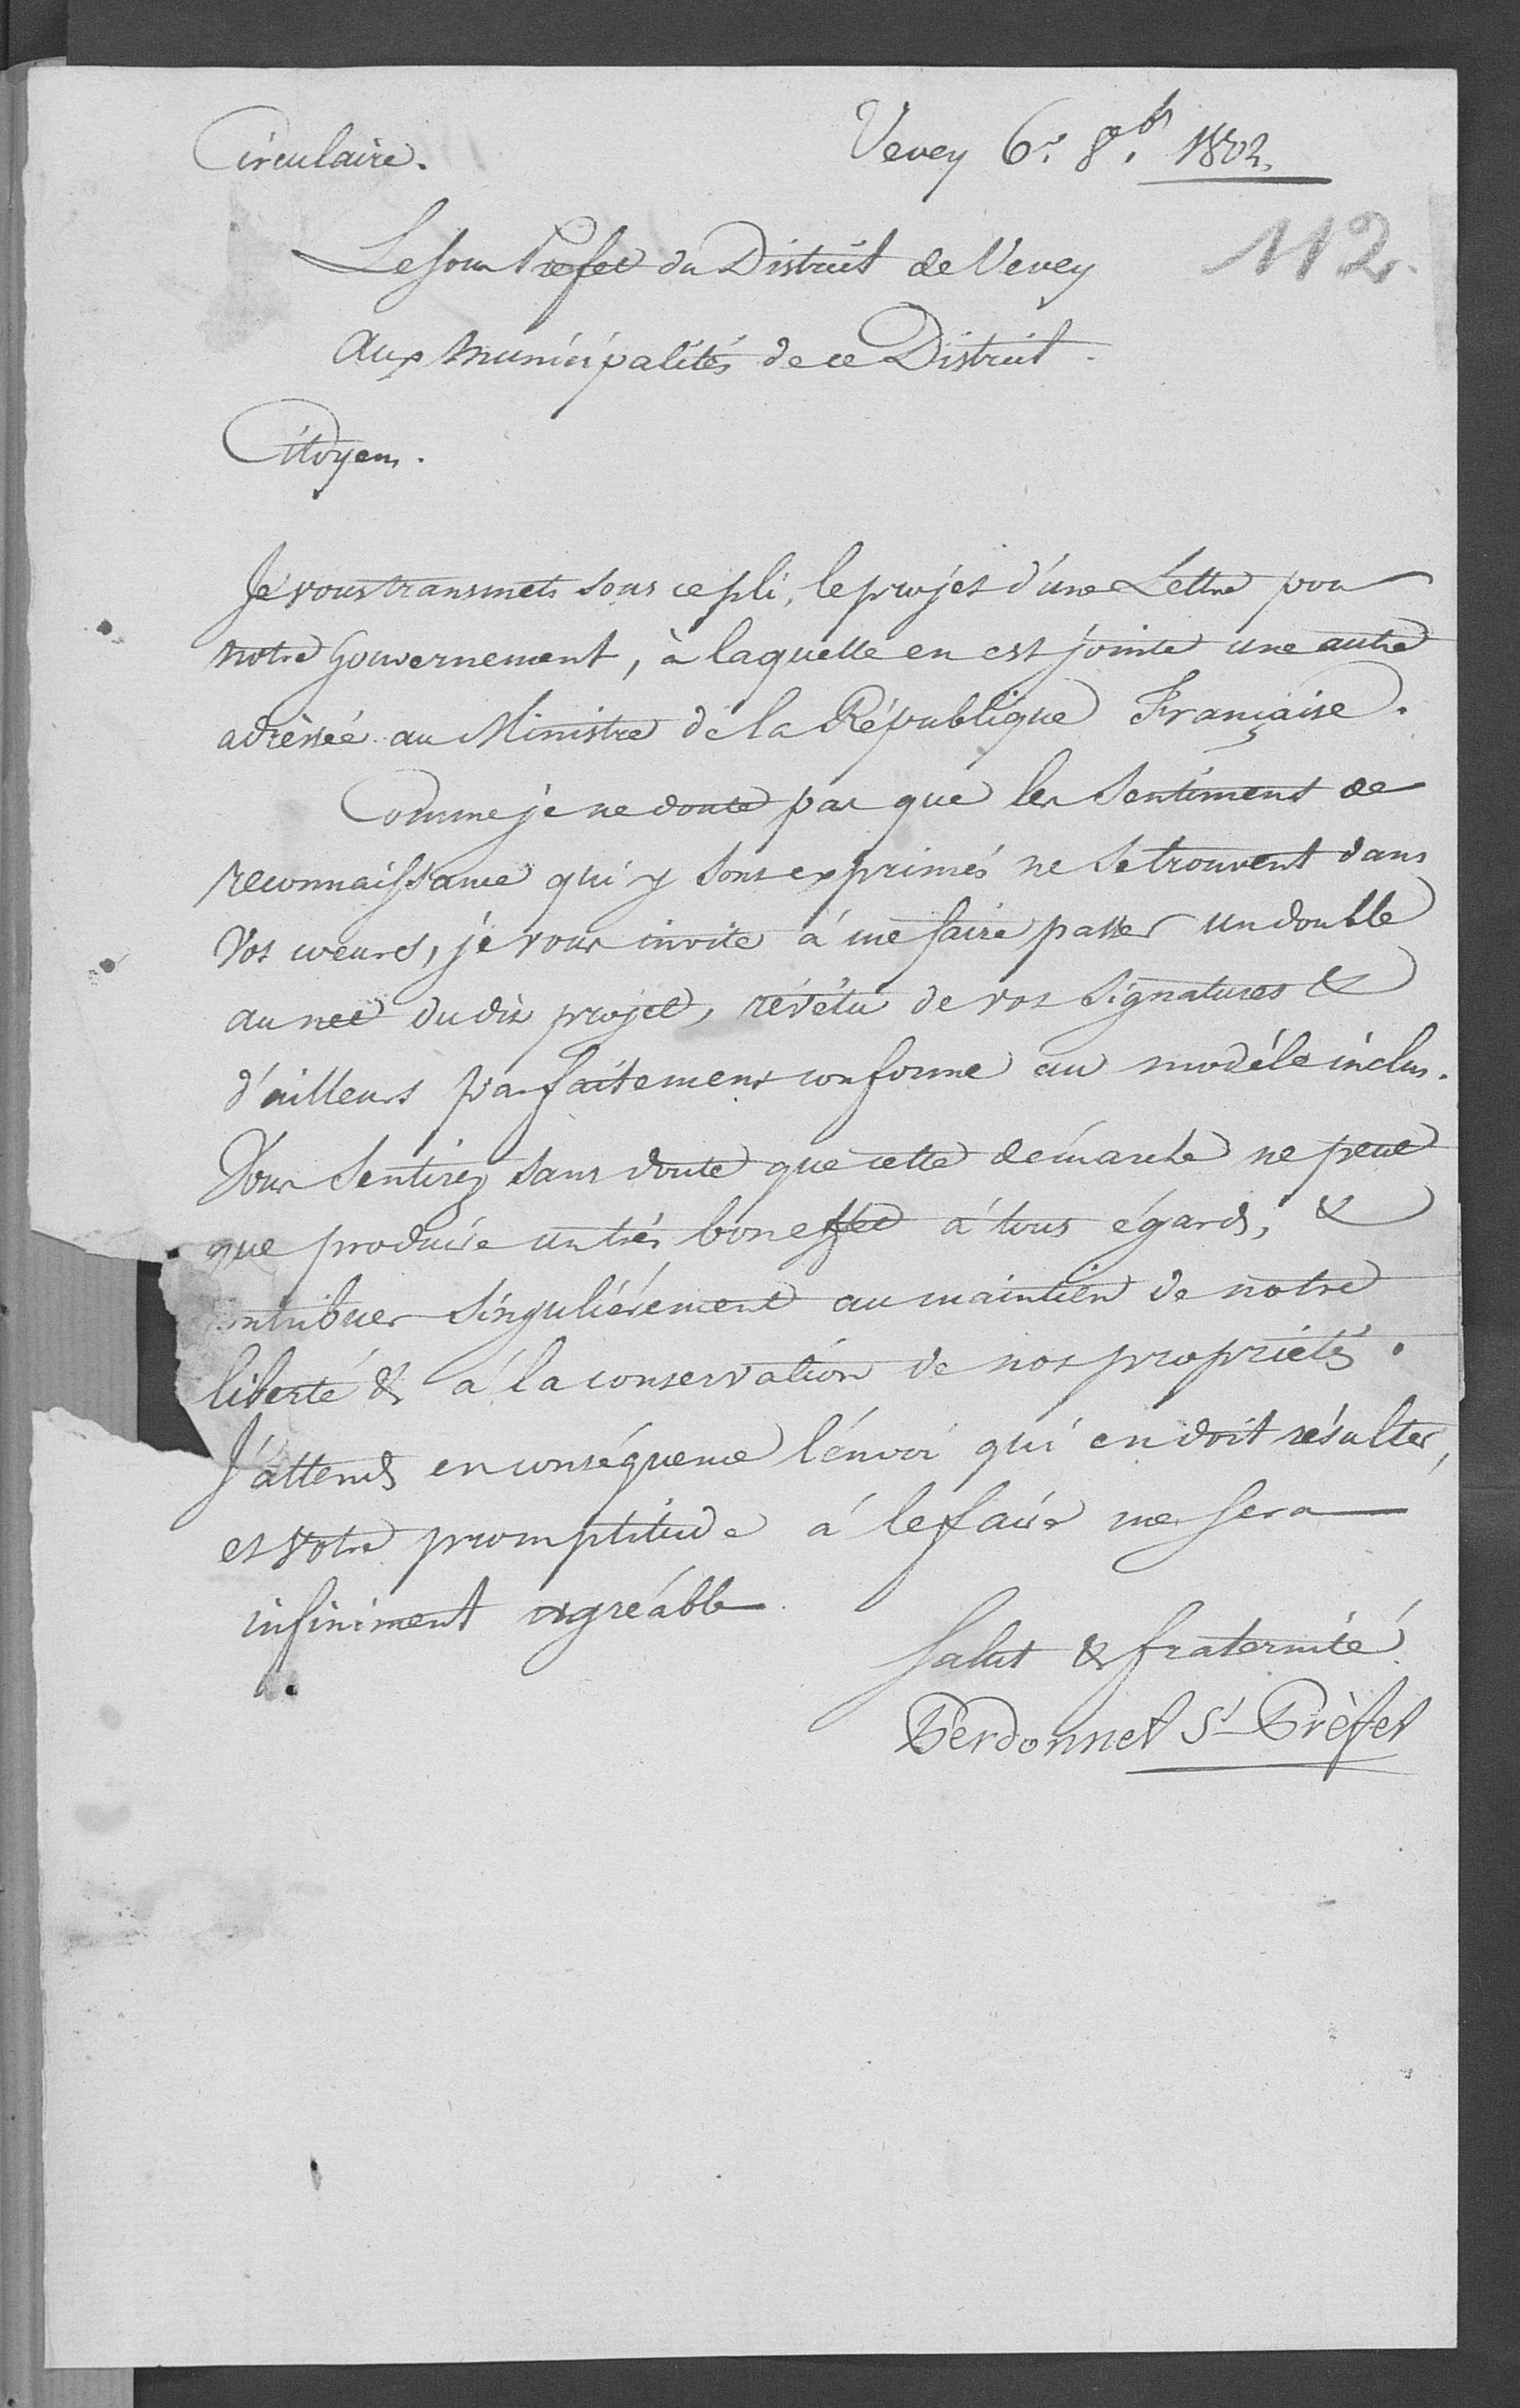 Circulaire. Vevey 6.e 8.bre 1802.
112.
Le sous Prefet du District de Vevey
aux Municipalités de ce District.
Citoyens.
Je vous transmets sous ce pli, le projet d'une Lettre pour
notre Gouvernement, à laquelle en est jointe une autre
adressée au Ministre de la République Française.
Comme je ne doute pas que les Sentiment de
reconnaissance qui y sont exprimés ne se trouvent dans
vos cœurs, je vous invite à me faire passer un double
au net dudit projet, révétu de vos signatures &
d'ailleurs parfaitement conforme au modéle inclus.
Vous sentirez sans doute que cette demarche ne peut
que produire un très bon effet à tous égards, &
contribuer singuliérement au maintien de notre
liberté & à la conservation de nos propriétés.
J'attends en conséquence l'envoi qui en doit résulter,
et votre promptitude à le faire me sera
infiniment agréable.
Salut & fraternité
Perdonnet S.s Prèfet